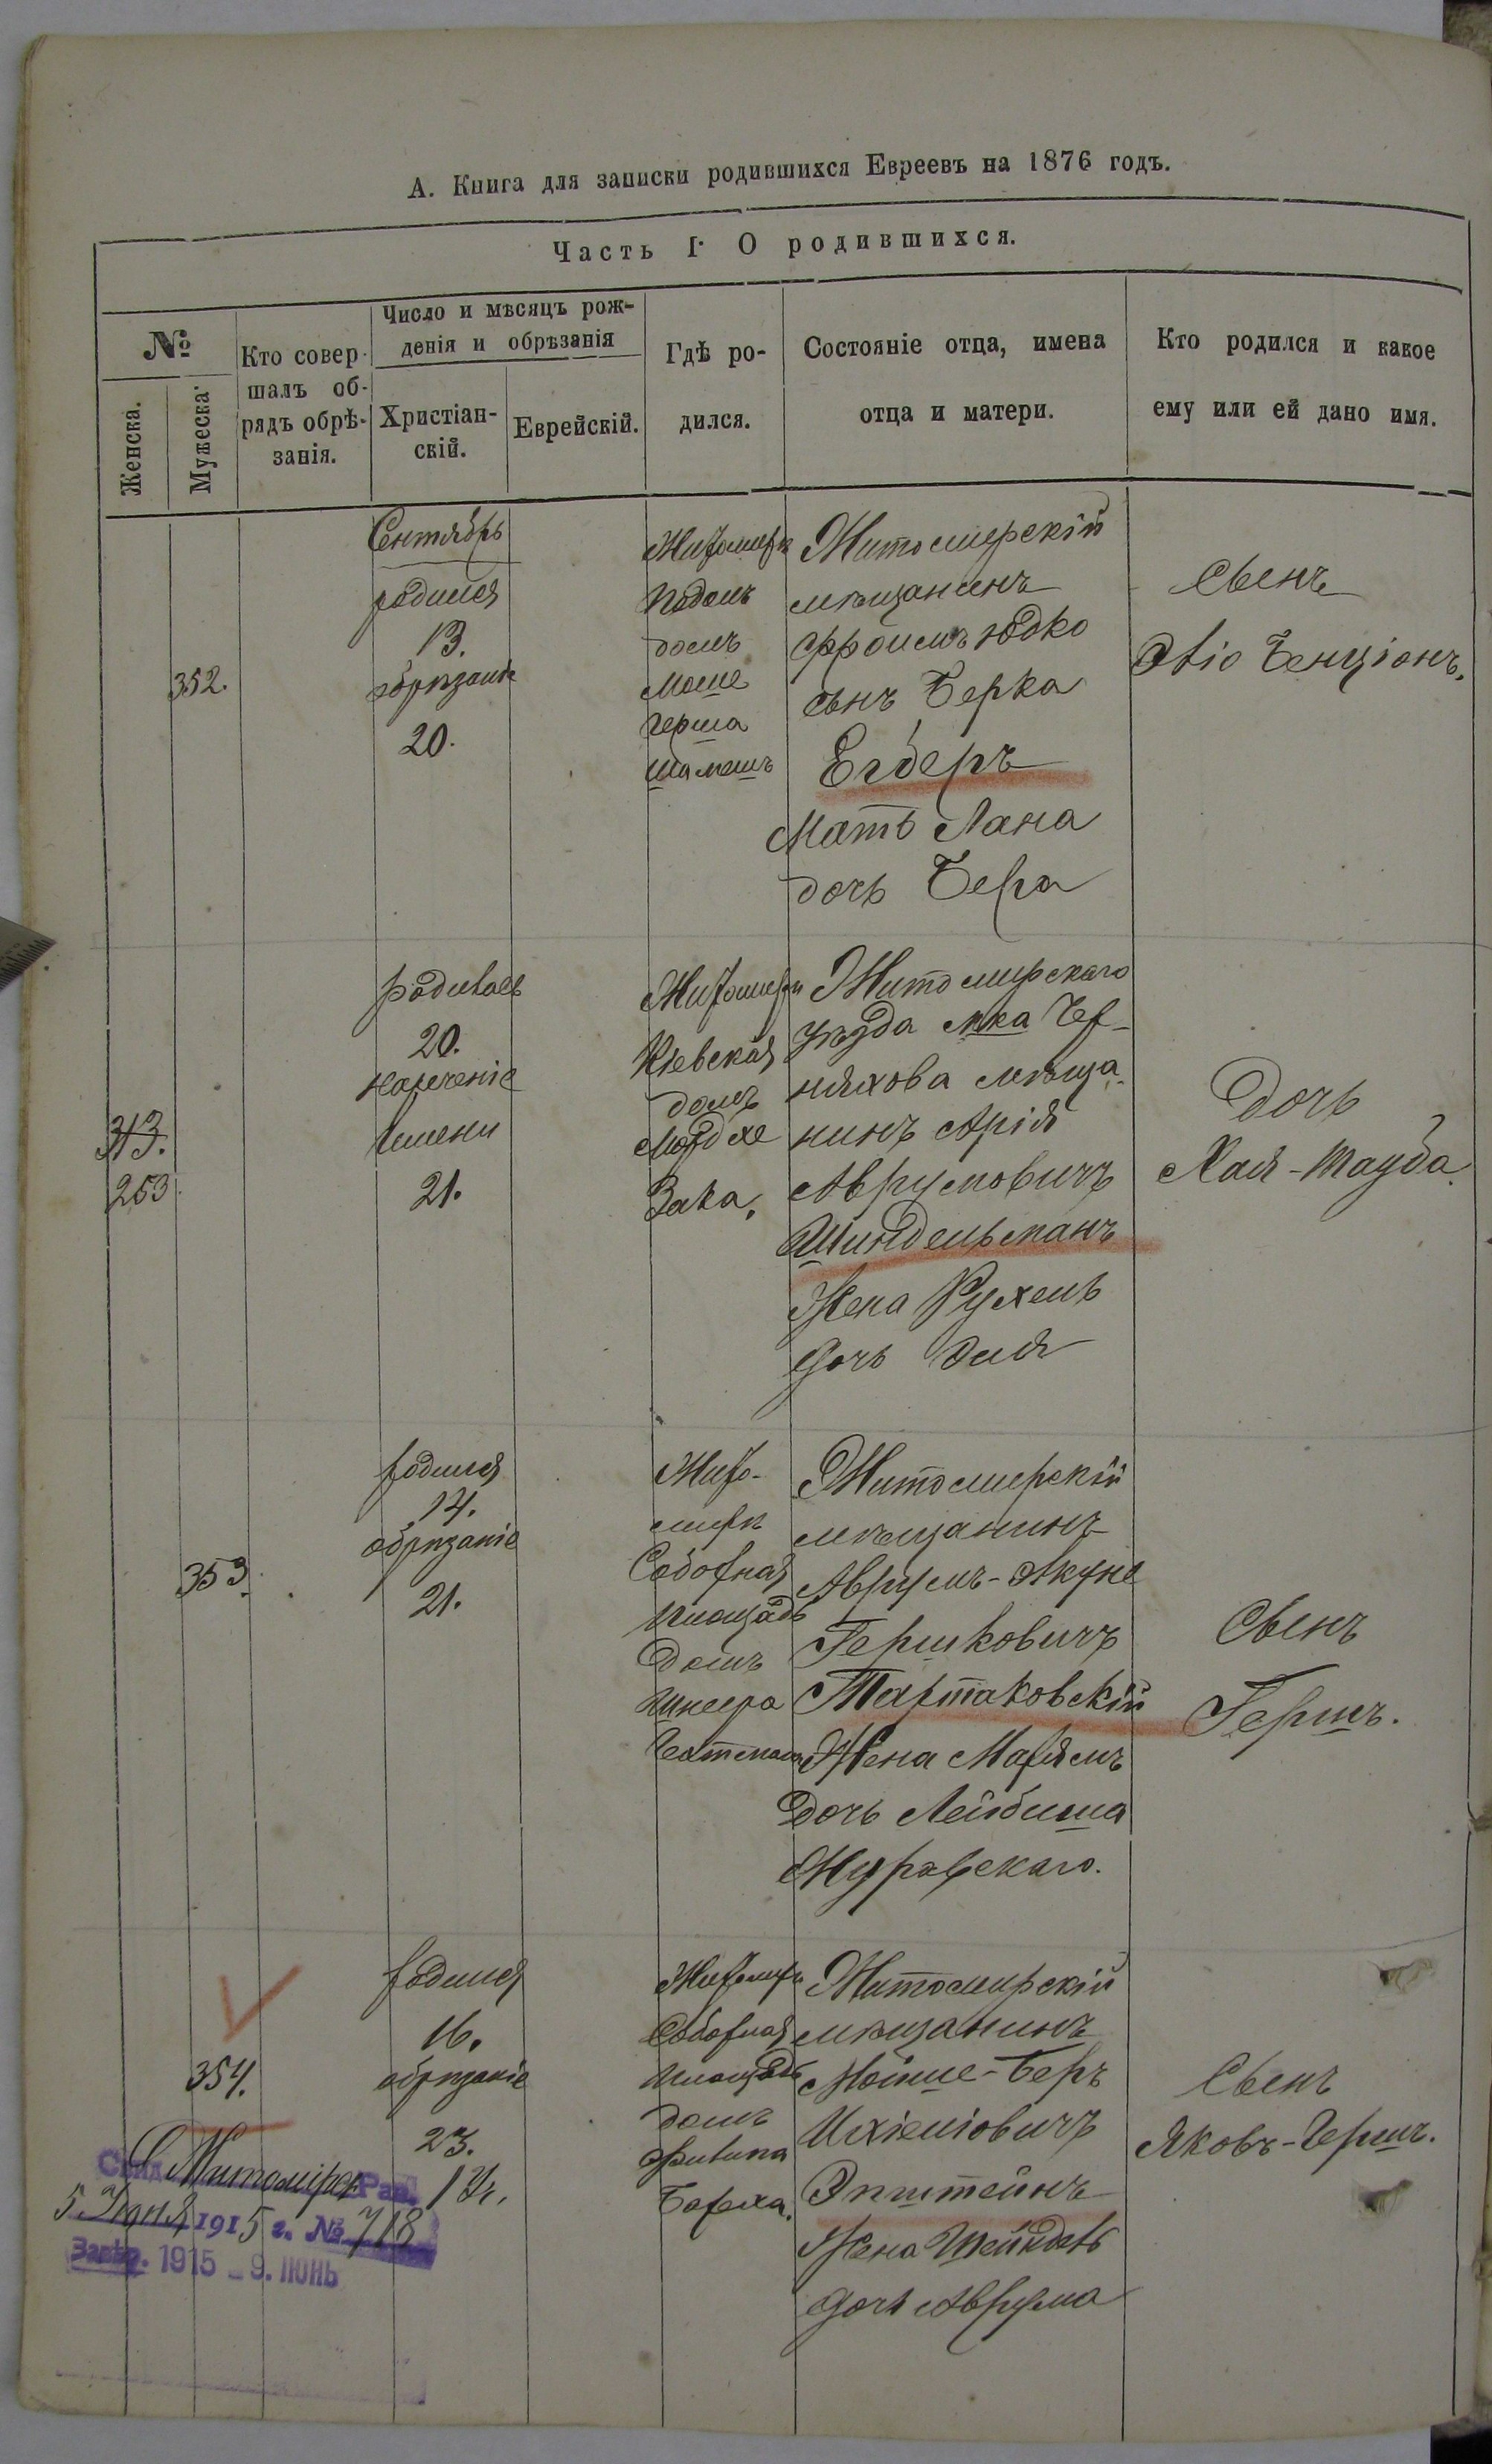 А. Книга для записки родившихся Евреевъ на 1876 годъ.
Часть I. О родившихся.
№
Женска.
Мужеска.
Кто совер-
шалъ об-
рядъ обрѣ-
занія.
Число и мѣсяцъ рож-
денія и обрѣзанія
Христіан-
скій.
Еврейскій.
Гдѣ ро-
дился.
Состояніе отца, имена
отца и матери.
Кто родился и какое
ему или ей дано имя.
352.
Сентябрь
родился
13.
обрѣзанъ
20.
Житомиръ
Подолъ
домъ
Моше
Герша
Шамешъ
Житомирскій
мѣщанинъ
Фроимъ Юдко
сынъ Берка
Егберъ
Мать Лана
дочь Бера
Сынъ
Бенціонъ.
313.
253
родилась
20.
нареченіе
Имени
21.
Житомиръ
Кіевская
домъ
Мордхе
Зака.
Житомирскаго
уѣзда мка Чер-
няхова мѣща-
нинъ Арія
Аврумовичъ
Шиндельманъ
Жена Рухель
дочь Эля
Дочь
Хая-Тауба.
353.
родился
14.
обрѣзаніе
21.
Жито-
миръ
Соборная
площадь
Домъ
Шнеера
Житомирскій
мѣщанинъ
Аврумъ-Якуне
Гершковичъ
Тартаковскій
Жена Марямъ
Дочь Лейбиша
Муравскаго.
Сынъ
Гершъ.
354.
родился
16.
обрѣзаніе
23.
Житомиръ
Соборная
площадь
домъ
Фивина
Бореха.
Житомирскій
мѣщанинъ
Мойше-Беръ
Ихіеліовичъ
Эпштейнъ
Жена Шейндель
дочь Аврума
Сынъ
Яковъ-Гершъ.
Житомірск. Рав.
5 Іюня 1915 г. № 718
1915 - 9. ІЮНЬ